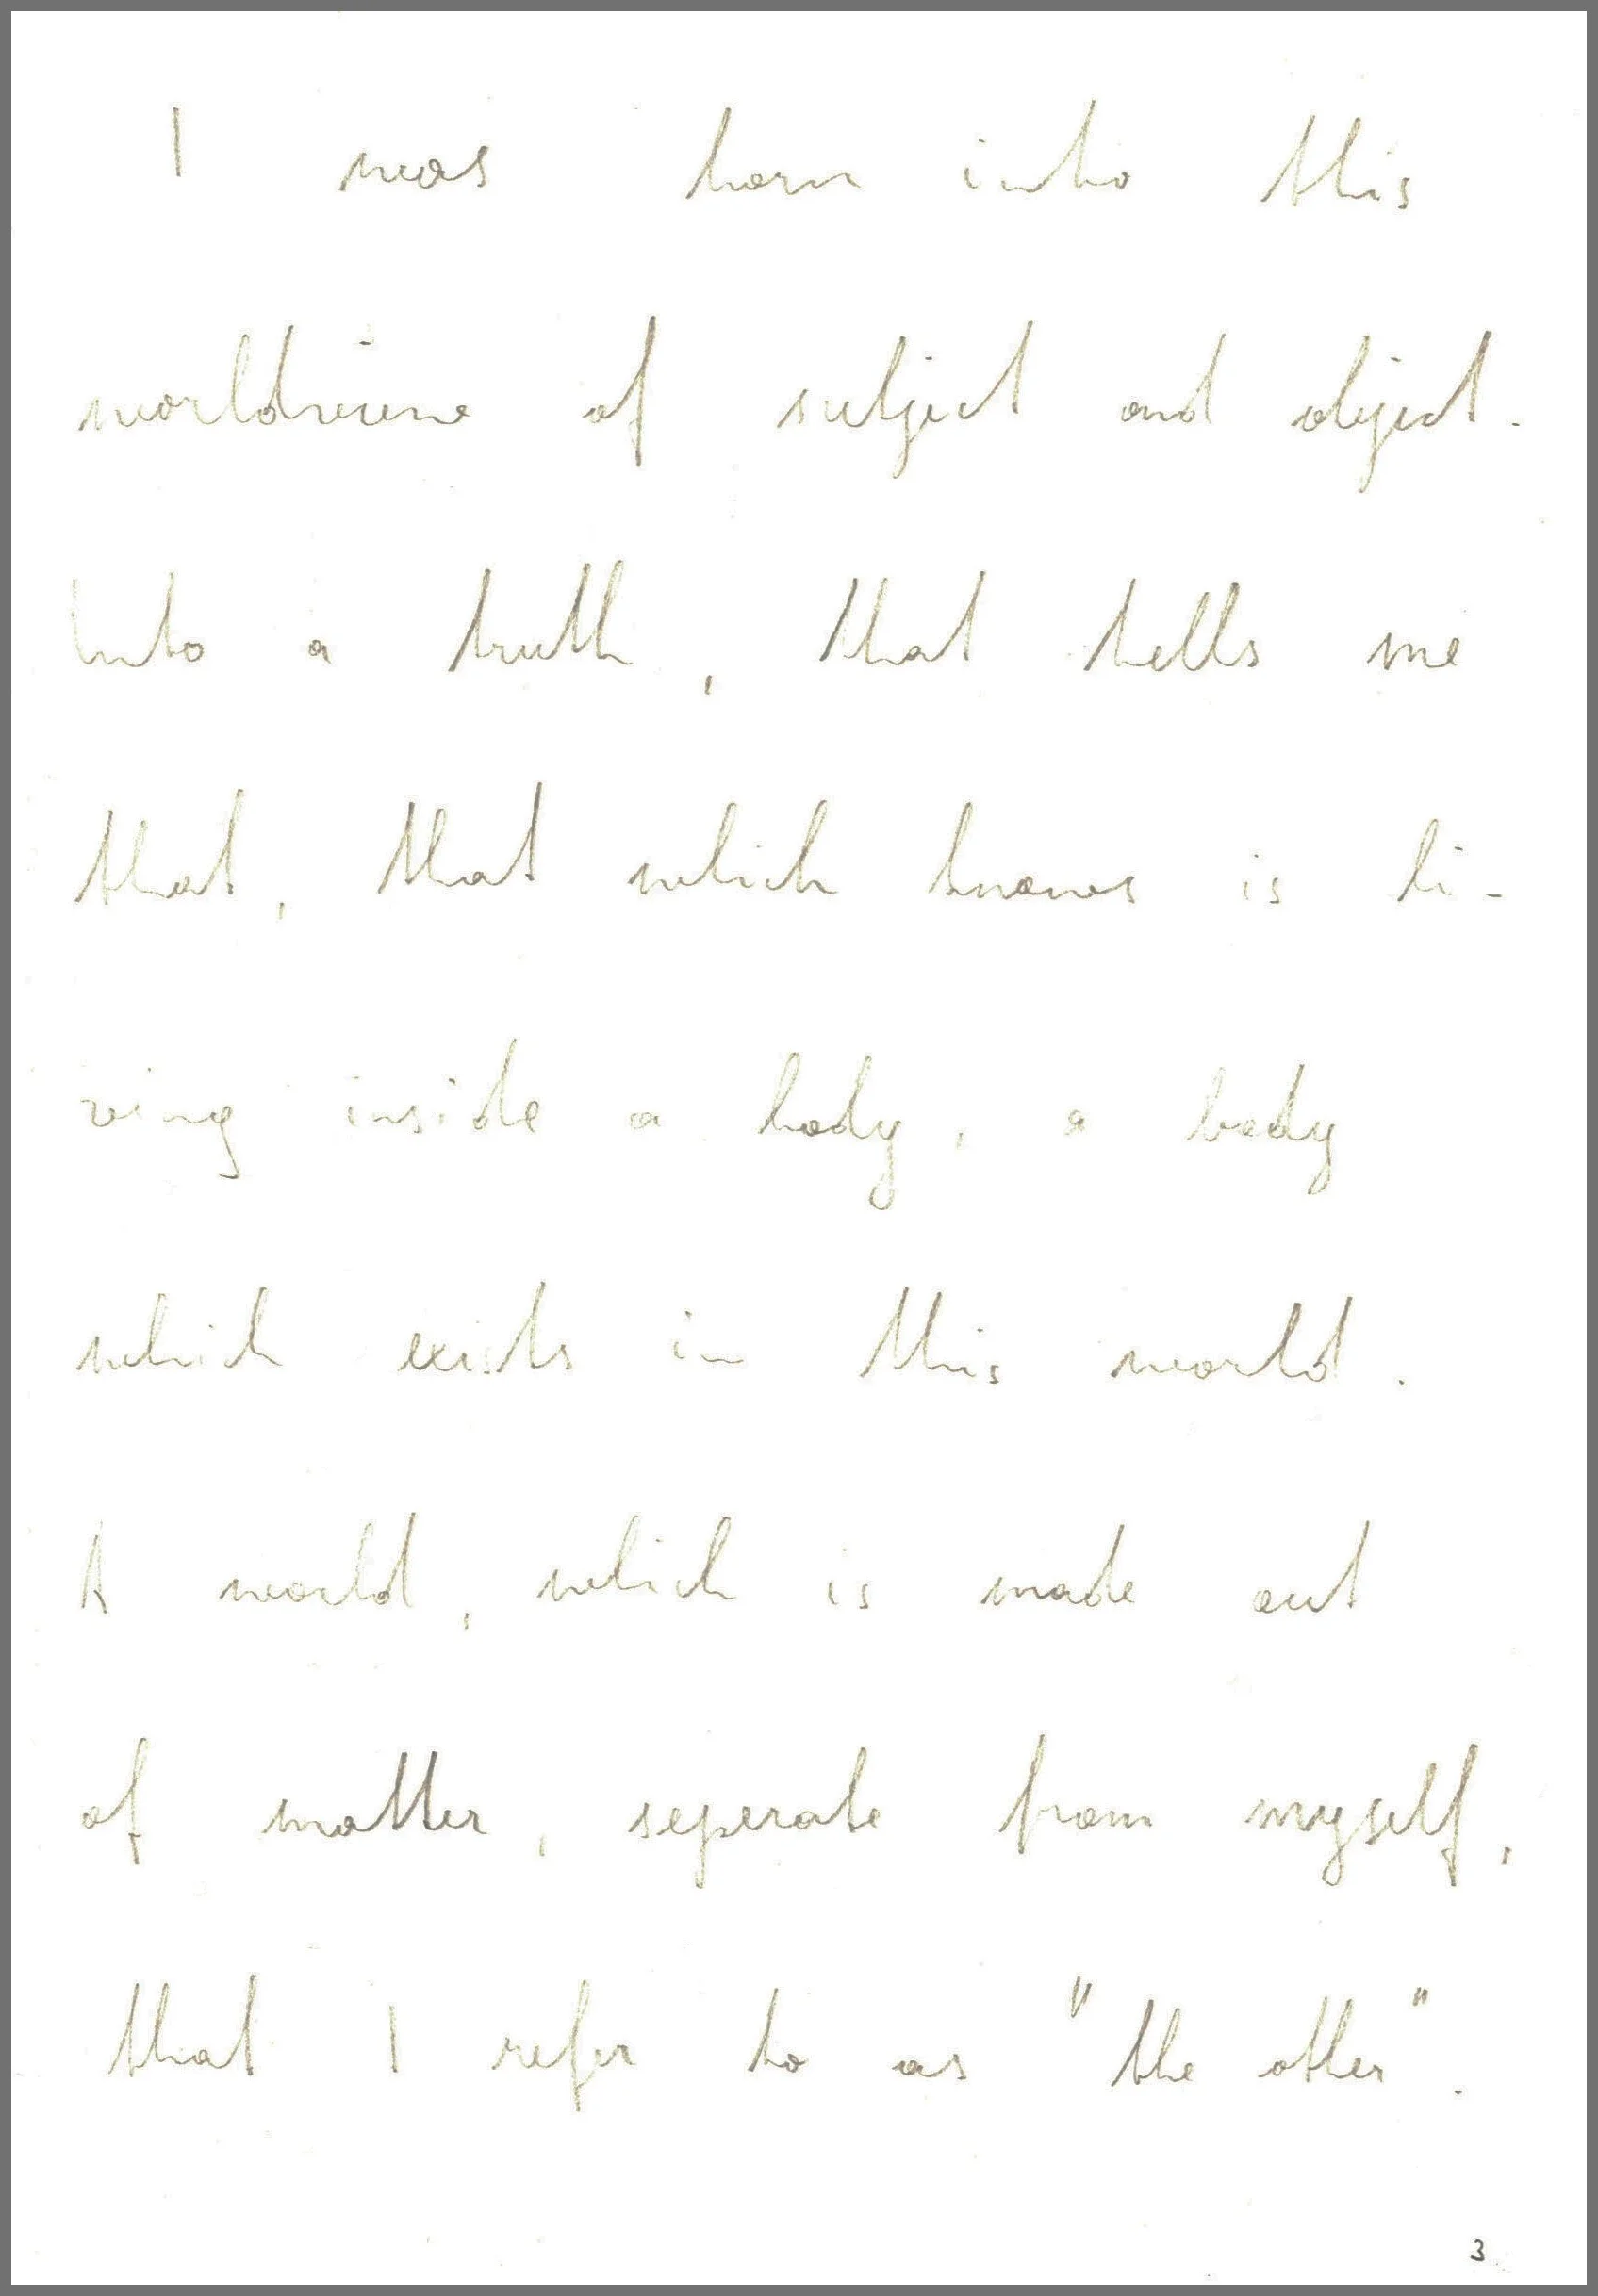 I was born into this
worldview of subject and object.
Into a truth, that tells me
that, that which knows is li-
ving inside a body, a body
which exists in this world.
A world, which is made out
of matter, seperate from myself,
that I refer to as "the other".
3